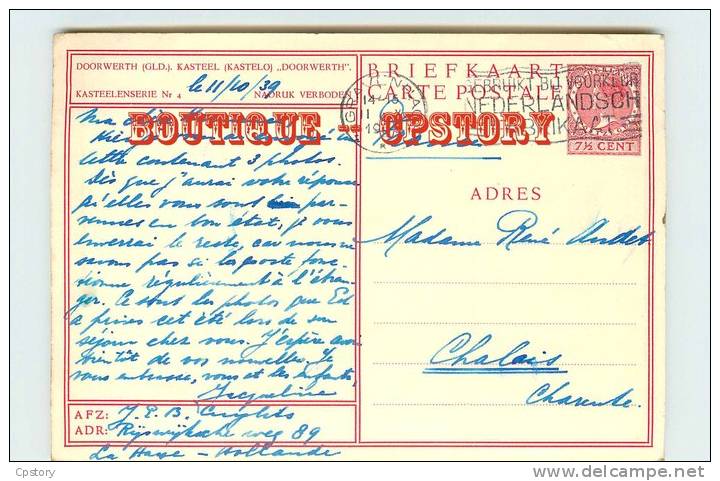 DOORWERTH (GLD). KASTEEL (KASTELO) „DOORWERTH”.
KASTEELENSERIE Nr 4 NADRUK VERBODEN
le 11/10/39
BRIEFKAART
CARTE POSTALE
GEBRUIKT BIJ VOORKEUR
NEDERLANDSCH
7½ CENT
BOUTIQUE - CPSTORY
Ma chère
Hier
lettre contenant 3 photos.
Dès que j'aurai votre réponse
qu'elles vous sont par-
venues en bon état, je vous
enverrai le reste, car nous ne
savons pas si la poste fonc-
tionne régulièrement à l'étran-
ger. Ce sont les photos que Ed
a prises cet été lors de son
séjour chez vous. J'espère avoir
bientôt de vos nouvelles. Je
vous embrasse, vous et les enfants,
Jacqueline
AFZ: J.P.B.
ADR: Rijswijksche weg 89
La Haye - Hollande
ADRES
Madame René Audet
Chalais
Charente.
Cpstory
delcampe.net